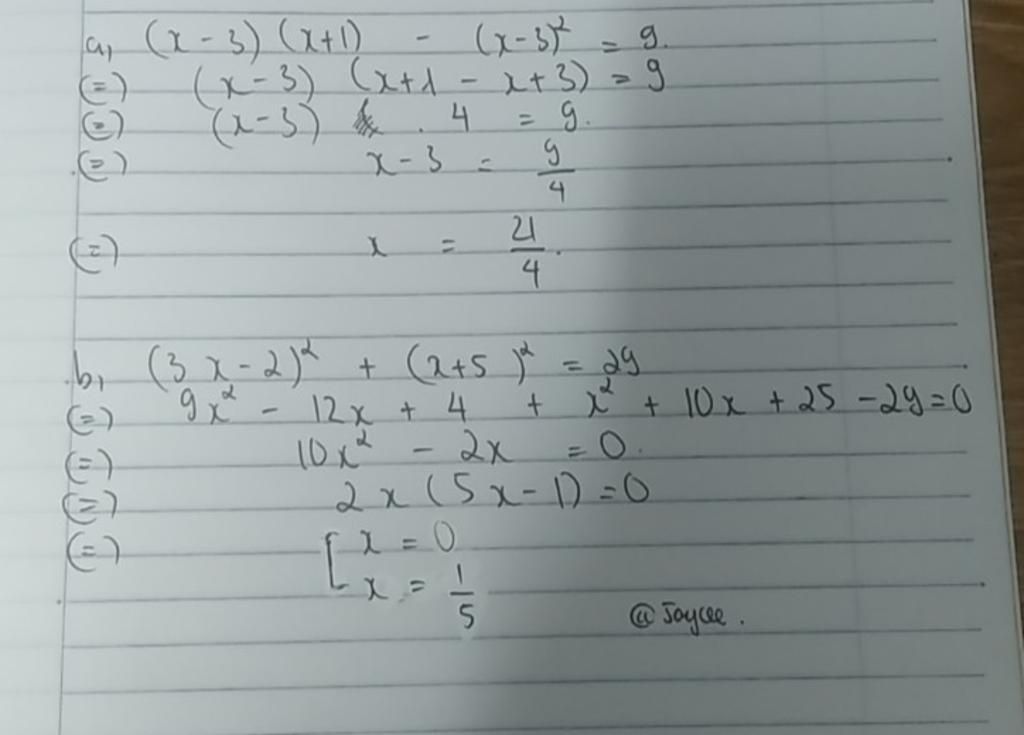 a, (x - 3) (x+1) - (x-3)² = 9.
(=) (x-3) (x+1 - x+3) = 9
(=) (x-3) . 4 = 9.
(=) x-3 = 9/4
(=) x = 21/4.
b, (3x-2)² + (x+5)² = 29
(=) 9x² - 12x + 4 + x² + 10x + 25 - 29 = 0
(=) 10x² - 2x = 0.
(=) 2x (5x-1) = 0
(=) [ x = 0
x = 1/5
@Jaycee.